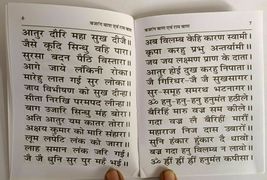 ६
बजरंग बाण एवं राम बाण
आतुर दौरि महा सुख दीजै।
जैसे कूदि सिन्धु वहि पारा।
सुरसा बदन पैठि विस्तारा।
आगे जाये लंकिनी रोका।
मारेहु लात गई सुर लोका।
जाय विभीषण को सुख दीन्हा।
सीता निरखि परमपद लीन्हा।
बाग उजारि सिन्धु मंह बोरा।
अति आतुर यम कातर तोरा।
अक्षय कुमार को मारि संहारा।
लूम लपेटि लंक को जारा।
लाह समान लंक जरि गई।
जै जै धुनि सुर पुर महं भई।
बजरंग बाण एवं राम बाण
७
अब विलम्ब केहि कारण स्वामी।
कृपा करहु प्रभु अन्तर्यामी।
जय जय लक्ष्मण प्राण के दाता।
आतुर होई दुख करहु निपाता।
जै गिरिधर-जै जै सुखसागर।
सुर-समूह समरथ भटनागर।
ॐ हनु-हनु-हनु हनुमंत हठीले।
बैरिहिं मारु वज्र सम कीलै।
गदा वज्र लै बैरिहीं मारौं।
महाराज निज दास उबारों।
सुनि हंकार हुंकार दै धावो।
वज्र गदा हनु विलम्ब न लावो।
ॐ ह्रीं ह्रीं ह्रीं हनुमंत कपीसा।